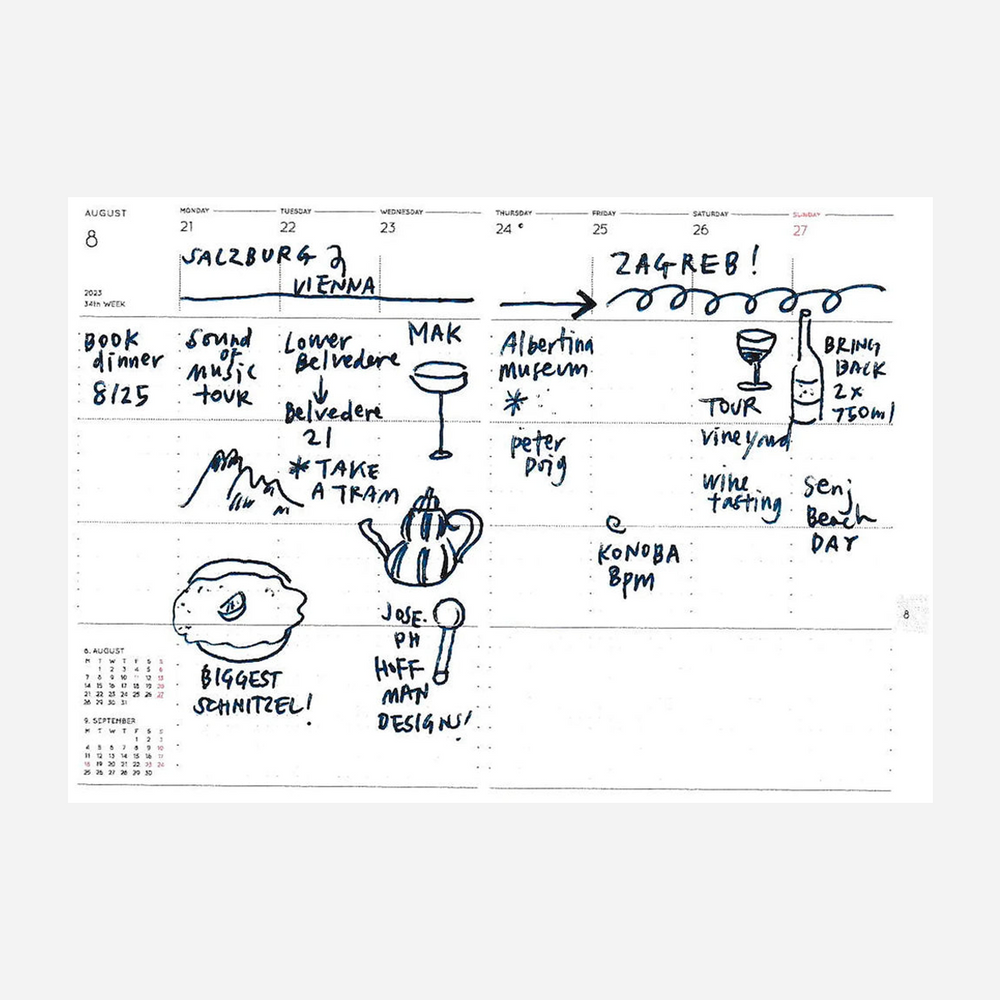 AUGUST
8
2023
34th WEEK
MONDAY
21
TUESDAY
22
WEDNESDAY
23
THURSDAY
24
FRIDAY
25
SATURDAY
26
SUNDAY
27
SALZBURG &
VIENNA
ZAGREB!
BOOK
dinner
8/25
Sound
of
music
TOUR
Lower
Belvedere
Belvedere
21
* TAKE
A TRAM
MAK
Albertina
museum
*
peter
Doig
BRING
BACK
2x
750ml
TOUR
vineyard
wine
tasting
Senj
Beach
DAY
KONOBA
8pm
BIGGEST
SCHNITZEL!
JOSE.
PH
HOFF
MAN
DESIGNS!
8
8. AUGUST
M T W T F S S
1 2 3 4 5 6
7 8 9 10 11 12 13
14 15 16 17 18 19 20
21 22 23 24 25 26 27
28 29 30 31
9. SEPTEMBER
M T W T F S S
1 2 3
4 5 6 7 8 9 10
11 12 13 14 15 16 17
18 19 20 21 22 23 24
25 26 27 28 29 30